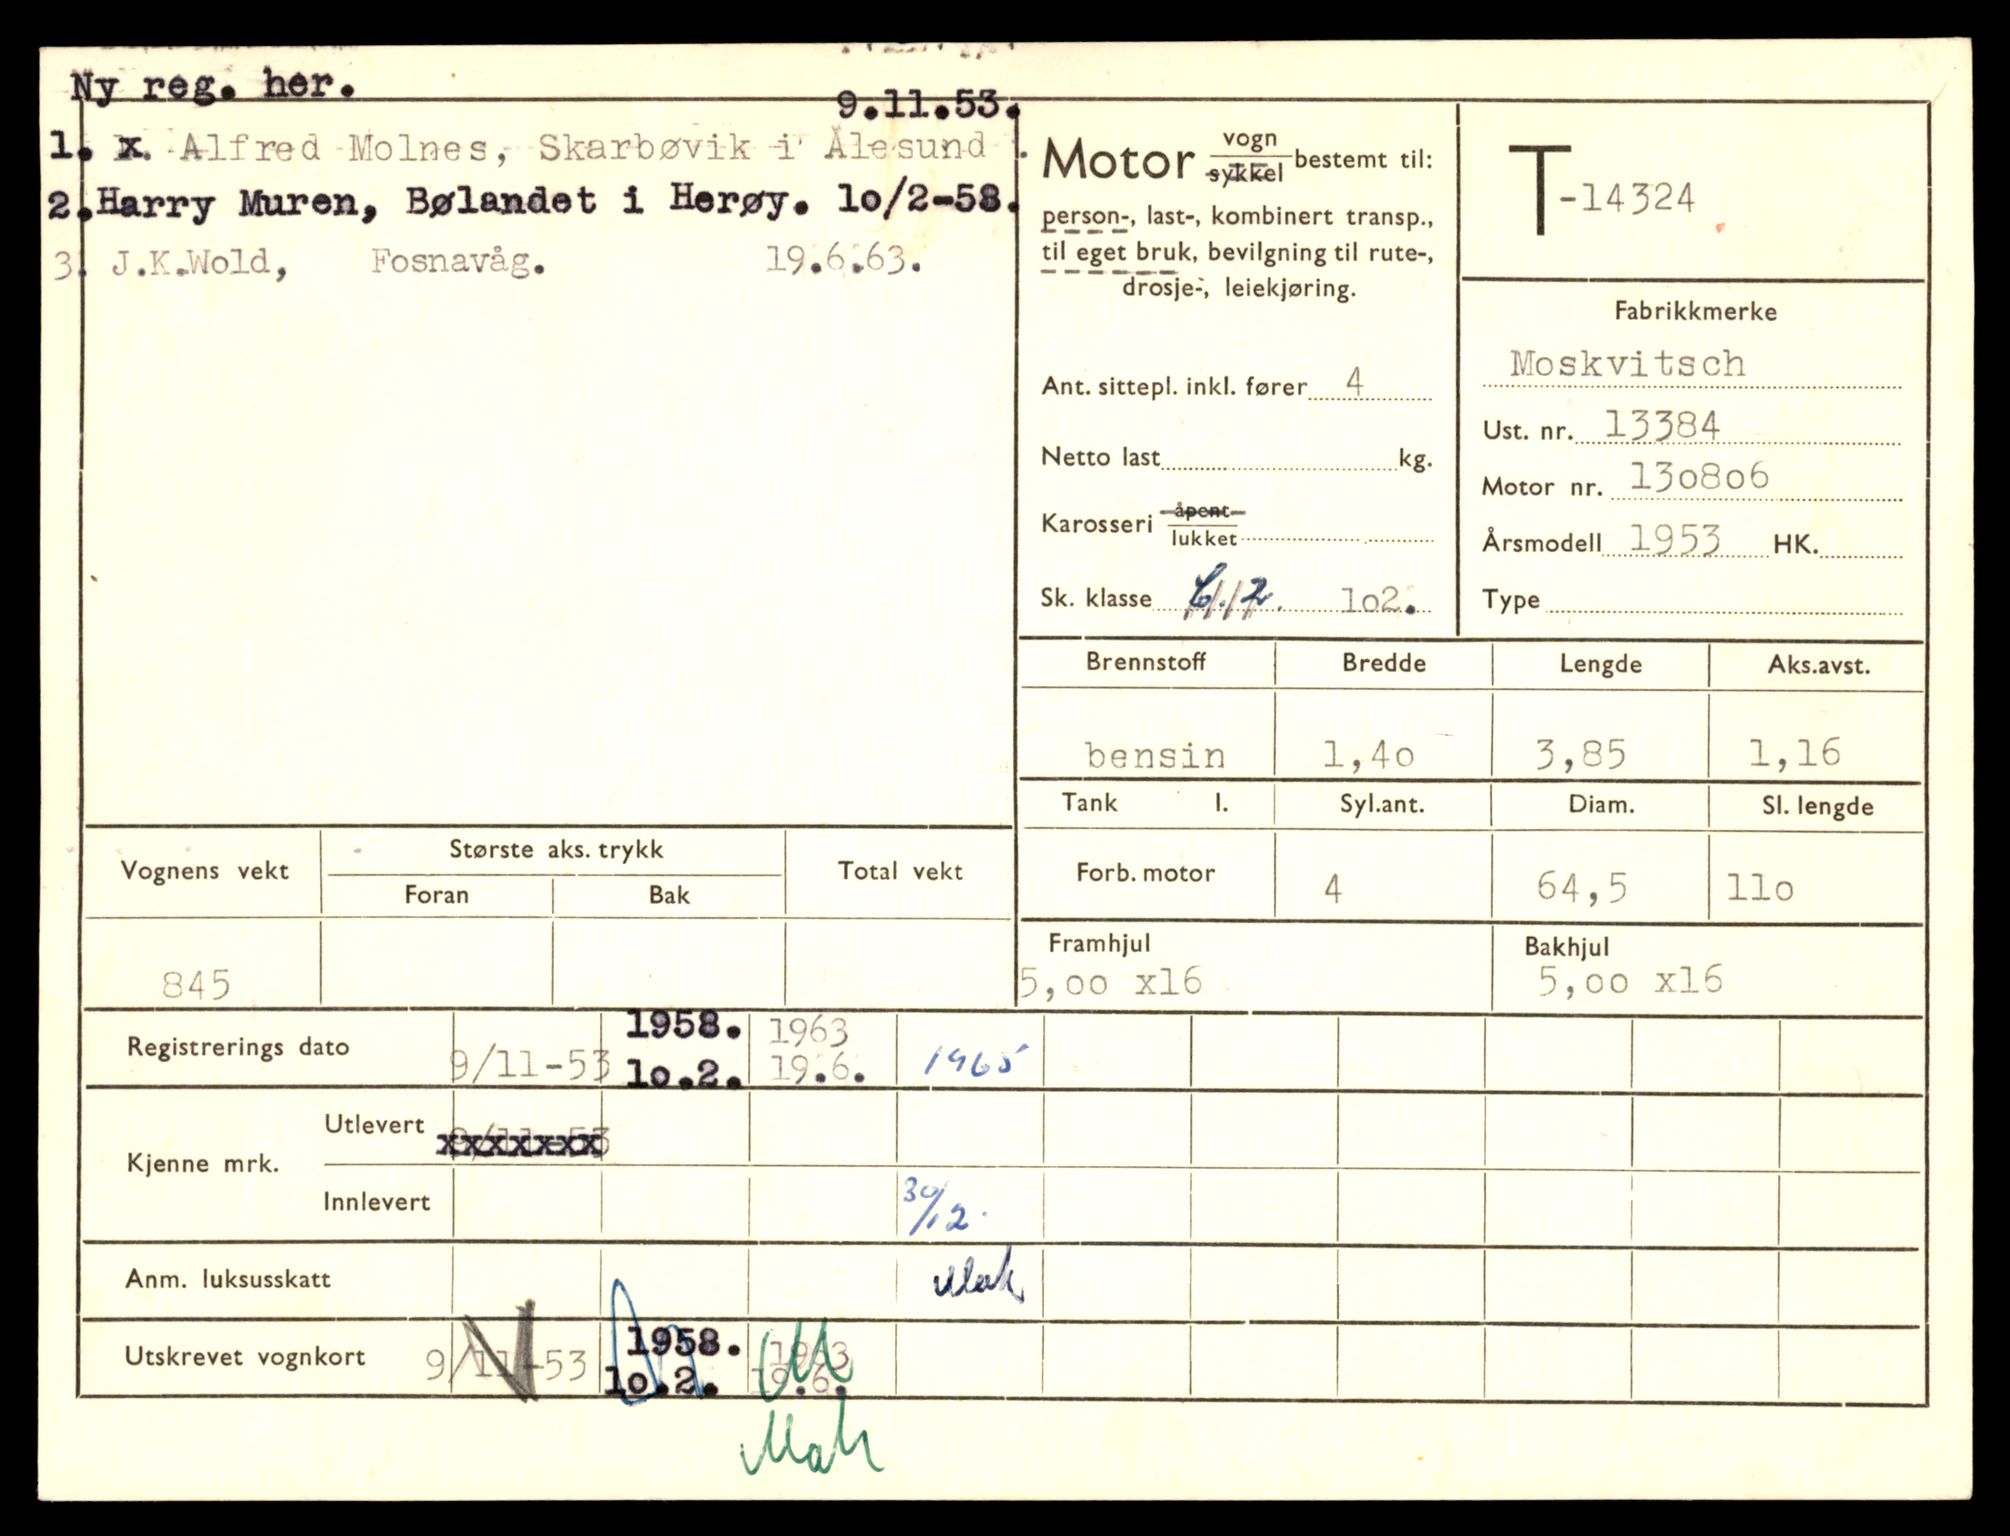 Ny reg. her.
9.11.53.
1. x. Alfred Molnes, Skarbøvik i Ålesund .
2. Harry Muren, Bølandet i Herøy. lo/2-58.
3. J.K.Wold, Fosnavåg. 19.6.63.
Motor vogn
sykkel bestemt til:
person-, last-, kombinert transp.,
til eget bruk, bevilgning til rute-,
drosje-, leiekjøring.
Ant. sittepl. inkl. fører 4
Netto last kg.
Karosseri åpent
lukket
Sk. klasse 102.
T-14324
Fabrikkmerke
Moskvitsch
Ust. nr. 13384
Motor nr. 13o8o6
Årsmodell 1953 HK.
Type
Brennstoff Bredde Lengde Aks.avst.
bensin 1,4o 3,85 1,16
Tank l. Syl.ant. Diam. Sl. lengde
Forb. motor 4 64,5 11o
Framhjul Bakhjul
5,oo x16 5,oo x16
Vognens vekt Største aks. trykk Total vekt
Foran Bak
845
Registrerings dato 9/11-53 1958. lo.2. 1963 19.6. 1965
Kjenne mrk. Utlevert 9/11-53
Innlevert 30/12.
Anm. luksusskatt
Utskrevet vognkort 9/11-53 1958. lo.2. 1963 19.6.